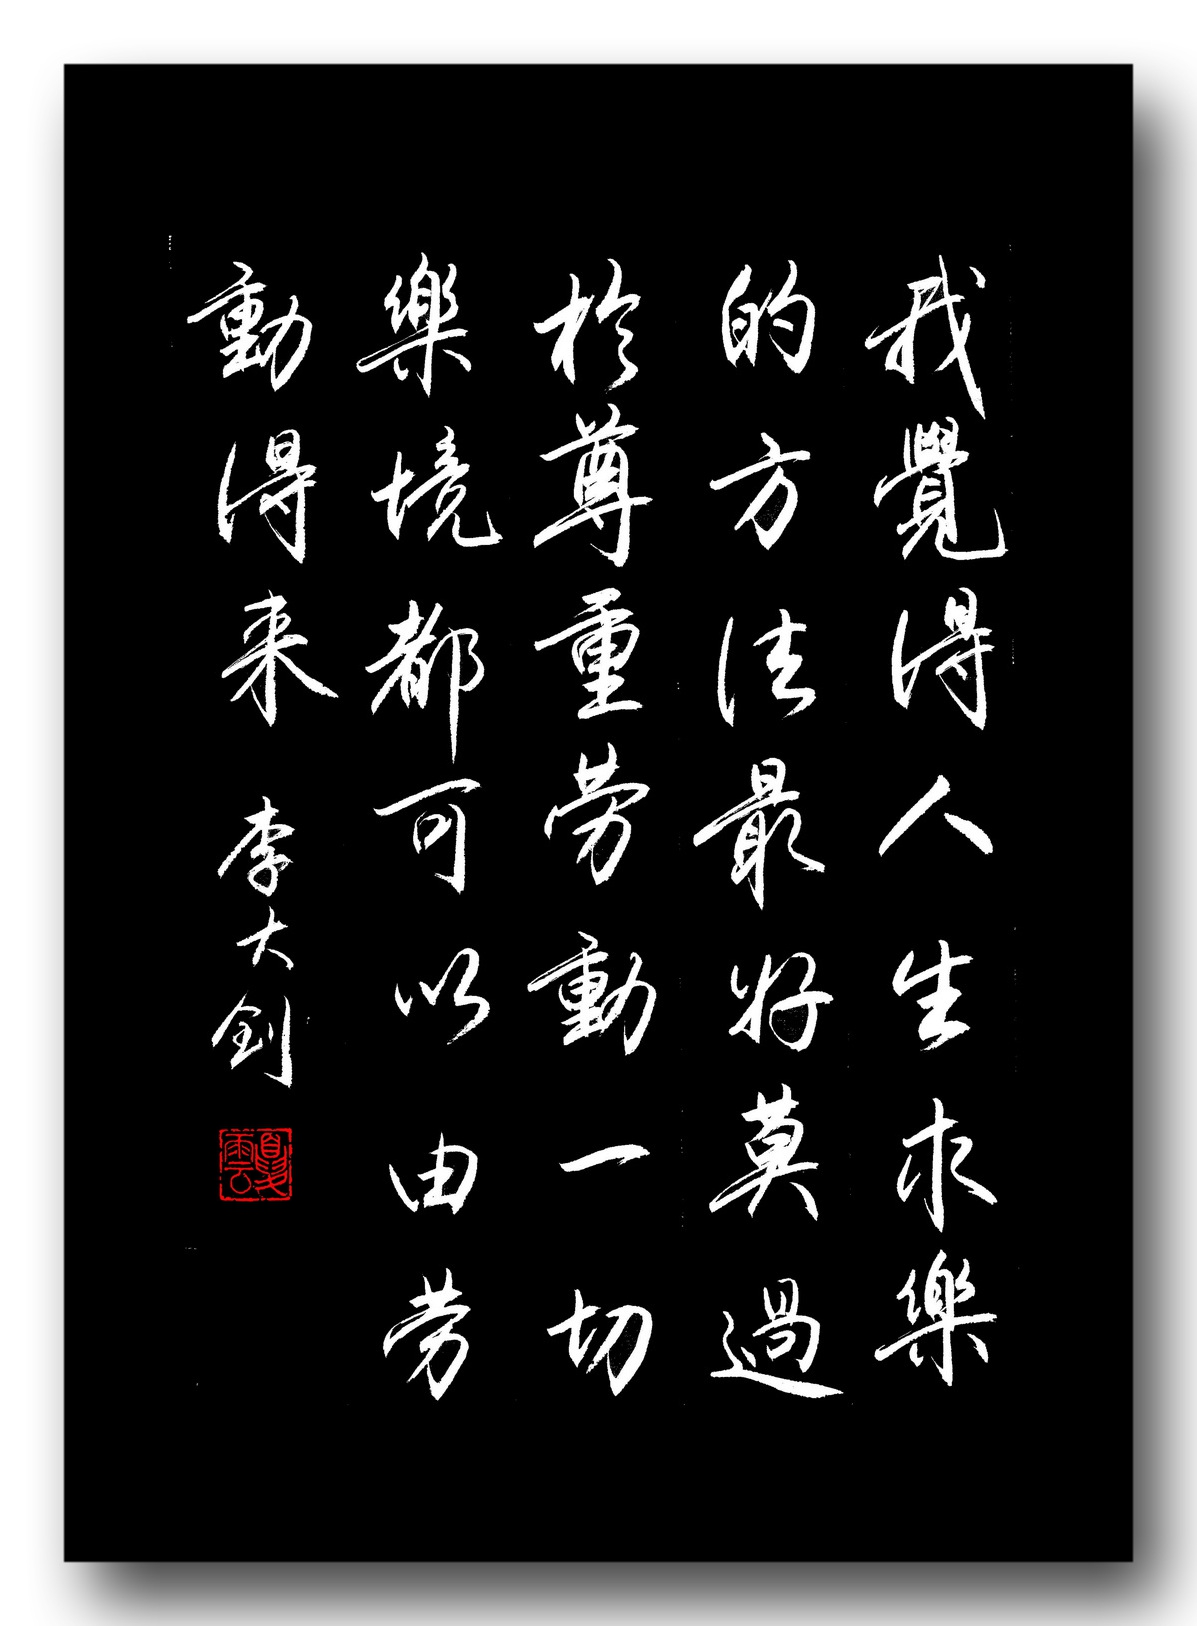 我覺得人生求樂
的方法最好莫過
於尊重劳動一切
樂境都可以由劳
動得来 李大釗
夏雲